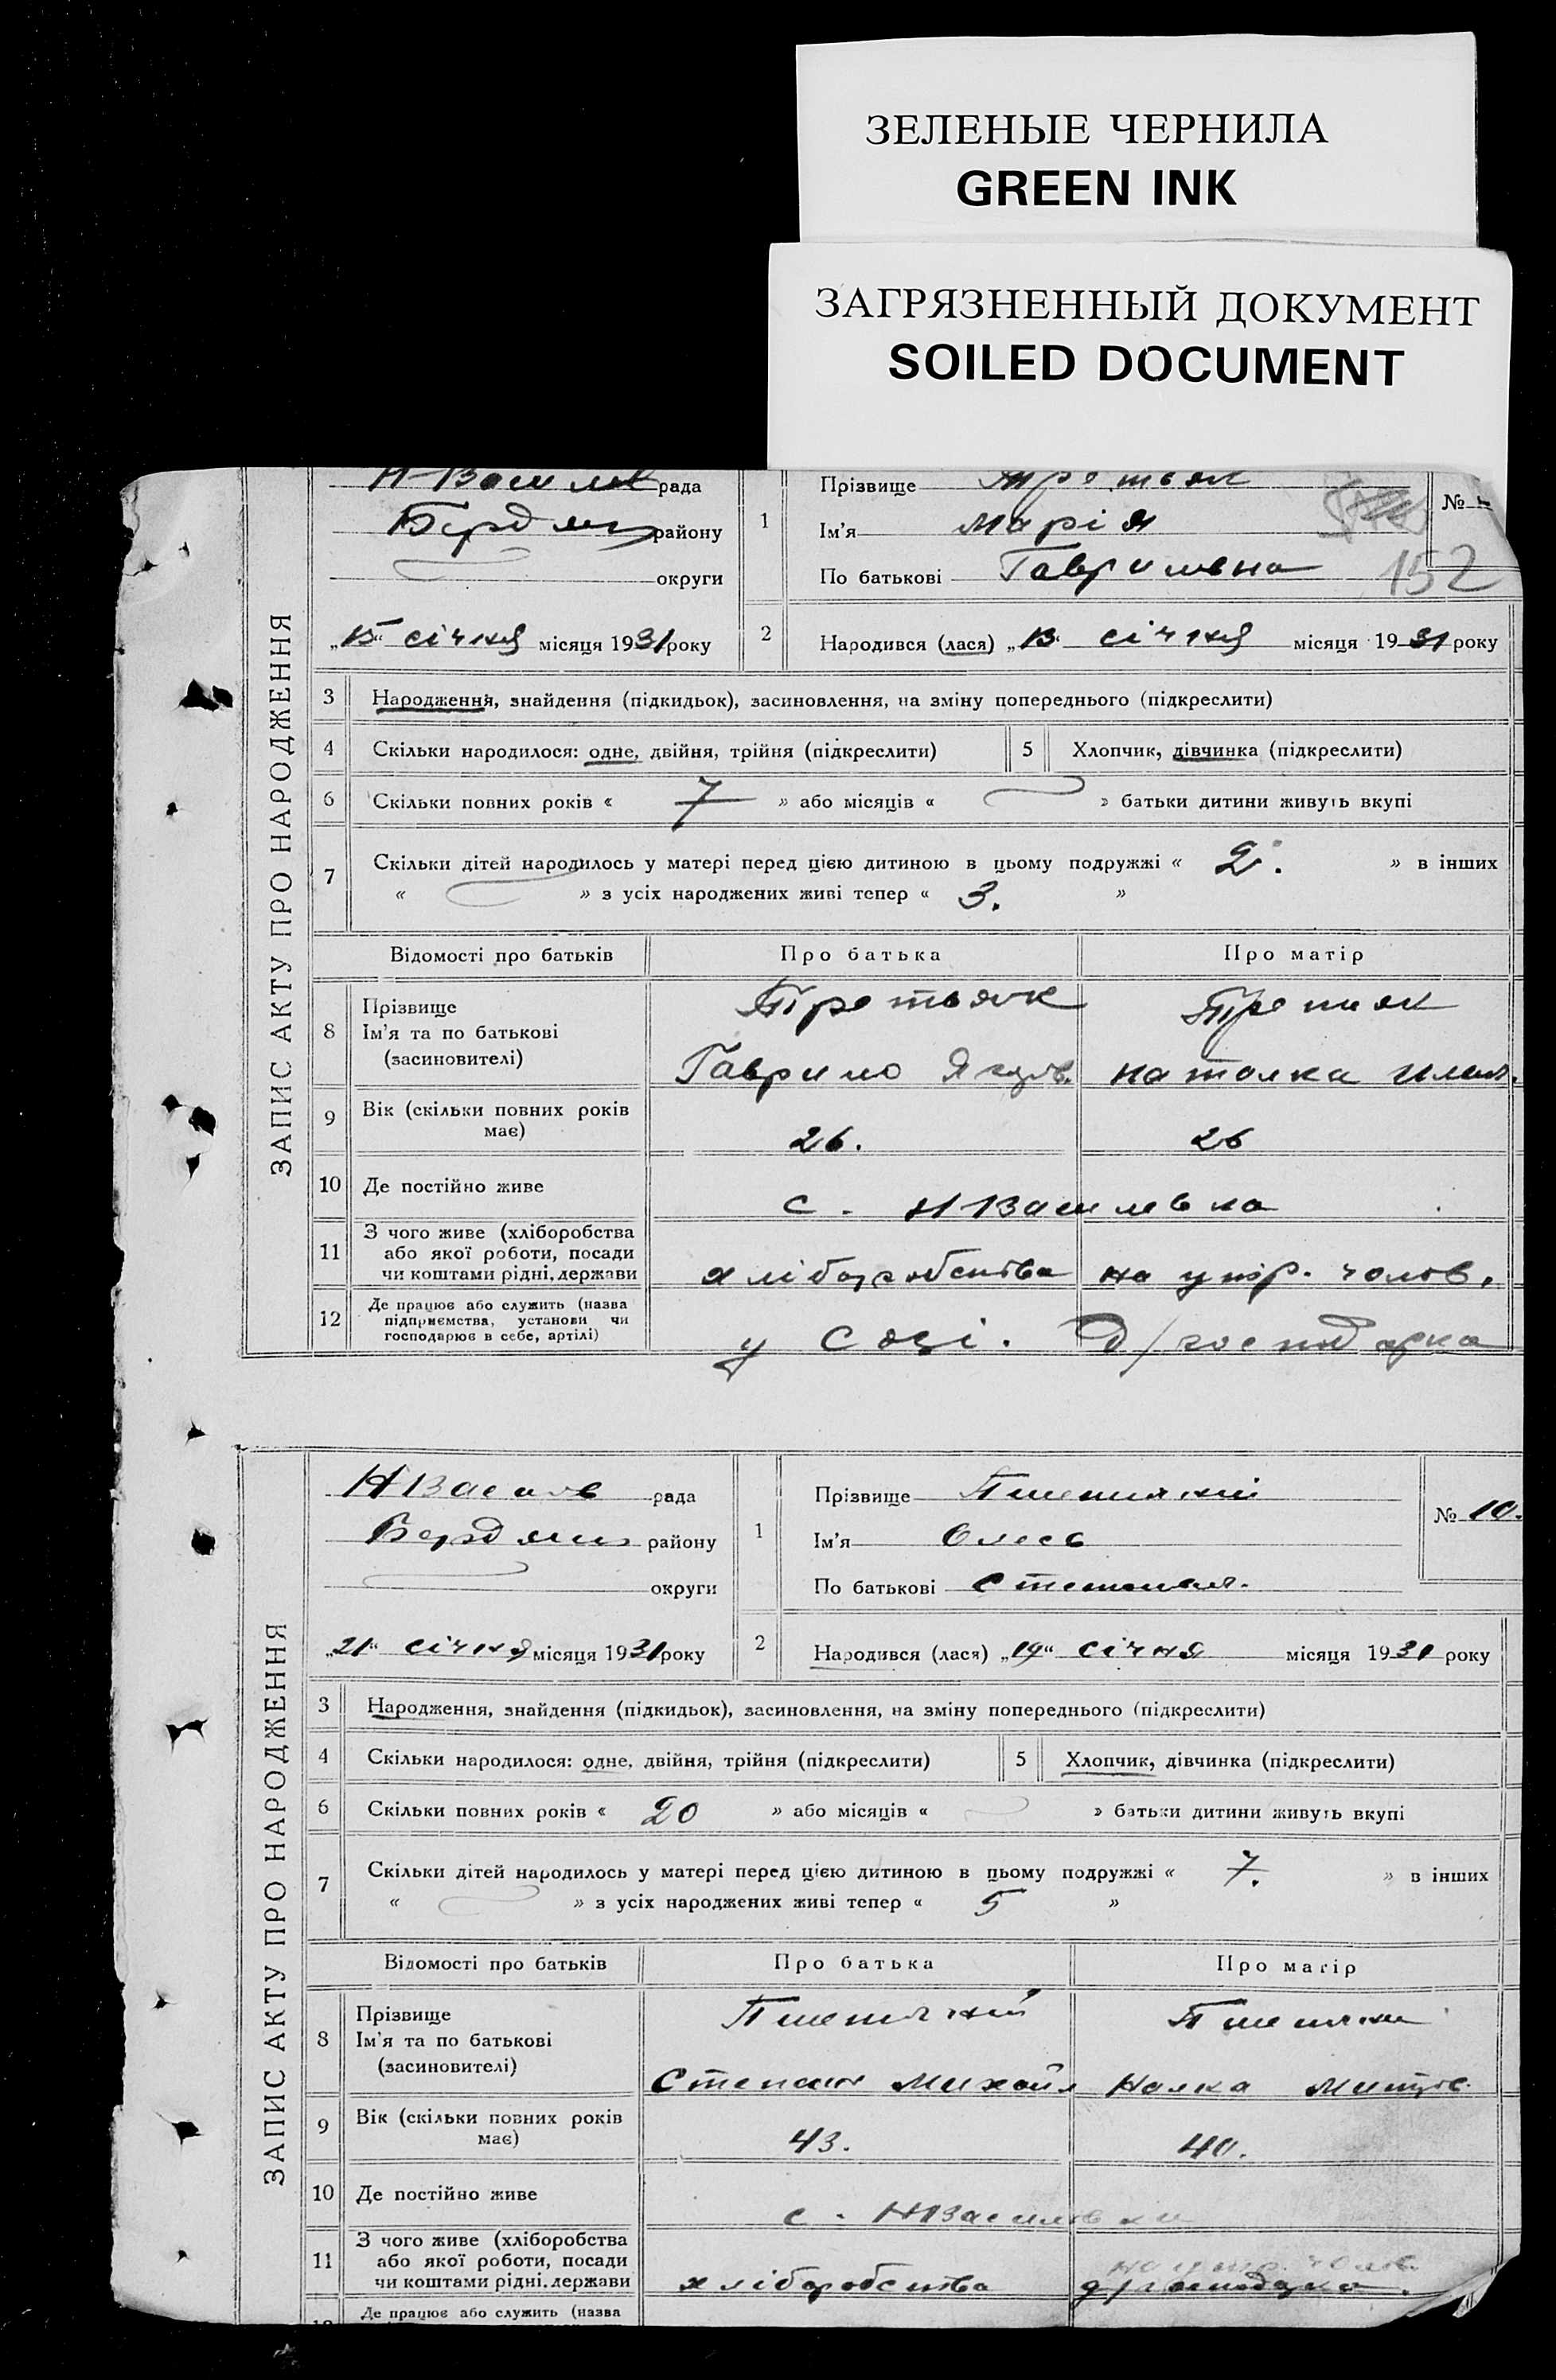 ЗЕЛЕНЫЕ ЧЕРНИЛА
GREEN INK
ЗАГРЯЗНЕННЫЙ ДОКУМЕНТ
SOILED DOCUMENT
ЗАПИС АКТУ ПРО НАРОДЖЕННЯ
Н-Василів рада
Бердян району
округи
„15“ січня місяця 1931 року
1
Прізвище Третьяк
Ім’я Марія
По батькові Гаврилівна
№
152
2 Народився (лася) „13“ січня місяця 1931 року
3 Народження, знайдення (підкидьок), засиновлення, на зміну попереднього (підкреслити)
4 Скільки народилося: одне, двійня, трійня (підкреслити) 5 Хлопчик, дівчинка (підкреслити)
6 Скільки повних років « 7 » або місяців « » батьки дитини живуть вкупі
7 Скільки дітей народилось у матері перед цією дитиною в цьому подружжі « 2. » в інших
« » з усіх народжених живі тепер « 3. »
Відомості про батьків Про батька Про матір
8 Прізвище
Ім’я та по батькові
(засиновителі)
Третьяк Третяк
Гаврило Яков. Наталка
9 Вік (скільки повних років має) 26. 26
10 Де постійно живе с. НВасилівка
11 З чого живе (хліборобства або якої роботи, посади чи коштами рідні, держави хліборобства на утр. чолов.
12 Де працює або служить (назва підприємства, установи чи господарює в себе, артілі) у Созі. д/господарка
ЗАПИС АКТУ ПРО НАРОДЖЕННЯ
НВасилів рада
Бердян району
округи
„21“ січня місяця 1931 року
1
Прізвище
Ім’я Олесь
По батькові Степанов.
№ 10.
2 Народився (лася) „19“ січня місяця 1931 року
3 Народження, знайдення (підкидьок), засиновлення, на зміну попереднього (підкреслити)
4 Скільки народилося: одне, двійня, трійня (підкреслити) 5 Хлопчик, дівчинка (підкреслити)
6 Скільки повних років « 20 » або місяців « » батьки дитини живуть вкупі
7 Скільки дітей народилось у матері перед цією дитиною в цьому подружжі « 7. » в інших
« » з усіх народжених живі тепер « 5 »
Відомості про батьків Про батька Про матір
8 Прізвище
Ім’я та по батькові
(засиновителі)
Степан Михайл
9 Вік (скільки повних років має) 43. 40.
10 Де постійно живе с. НВасилівки
11 З чого живе (хліборобства або якої роботи, посади чи коштами рідні, держави хліборобства на утр. чолов. д/господарка.
Де працює або служить (назва